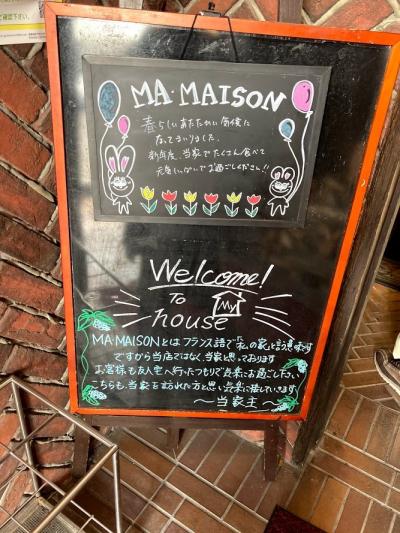 MA·MAISON
春らしいあたたかい気候に
なってまいりました。
新年度、当家でたくさん食べて
元気いっぱいでお過ごしください!!
Welcome!
To My
house
MA·MAISONとは フランス語で「私の家」と言う意味です
ですから当店ではなく、当家と思っております
お客様も友人宅へ行ったつもりで気楽にお過ごし下さい
こちらも、当家を訪れた方と思い気楽に接していきます
〜当家主〜